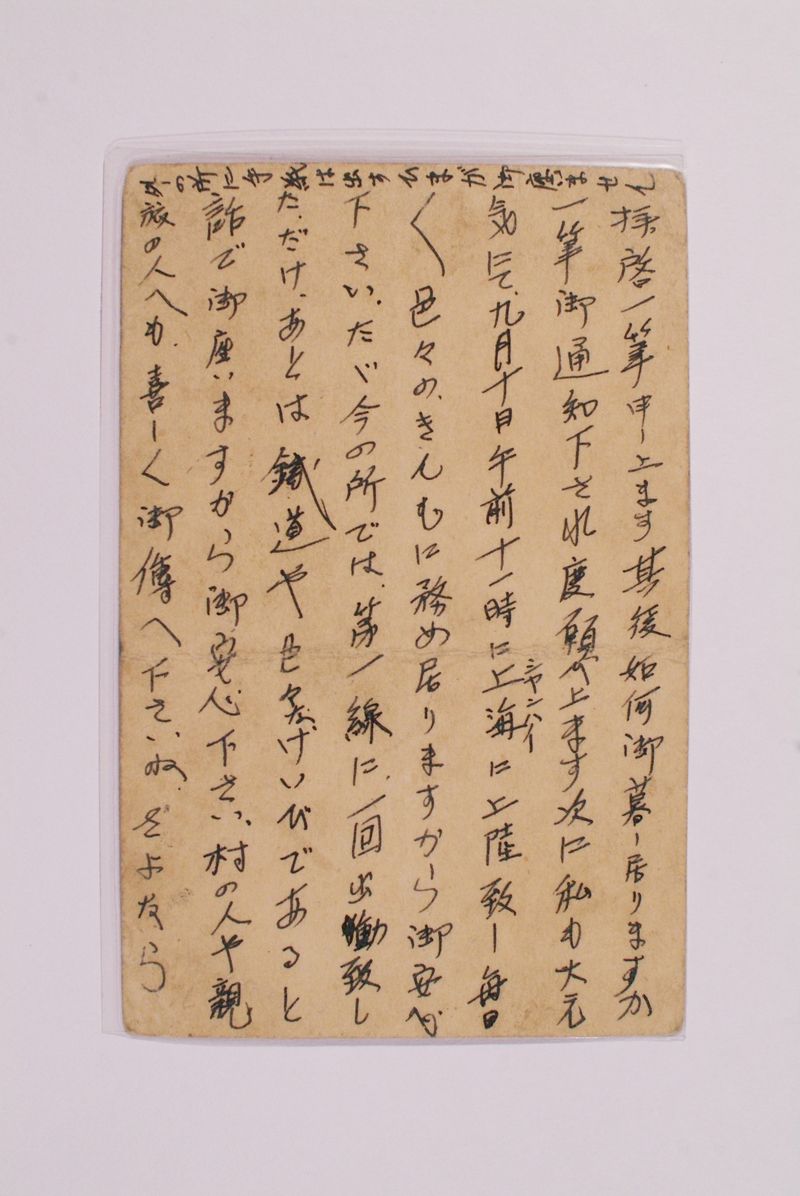 拝啓一筆申し上ます其後如何御暮し居りますか
一筆御通知下され度願ヘ上ます次に私も大元
気にて、九月十日午前十一時に上海に上陸致し毎日
シャンハイ
〱色々の、きんむに務め居りますから御安心
下さい、たゞ今の所では、第一線に、一回出動致し
た、だけ、あとは鉄道や色々な、けいびであると
話で御座いますから御安心下さい、村の人や親
族の人へも、喜しく御傳へ下さいね、さよなら
の所に手紙は出すひまが御座ません